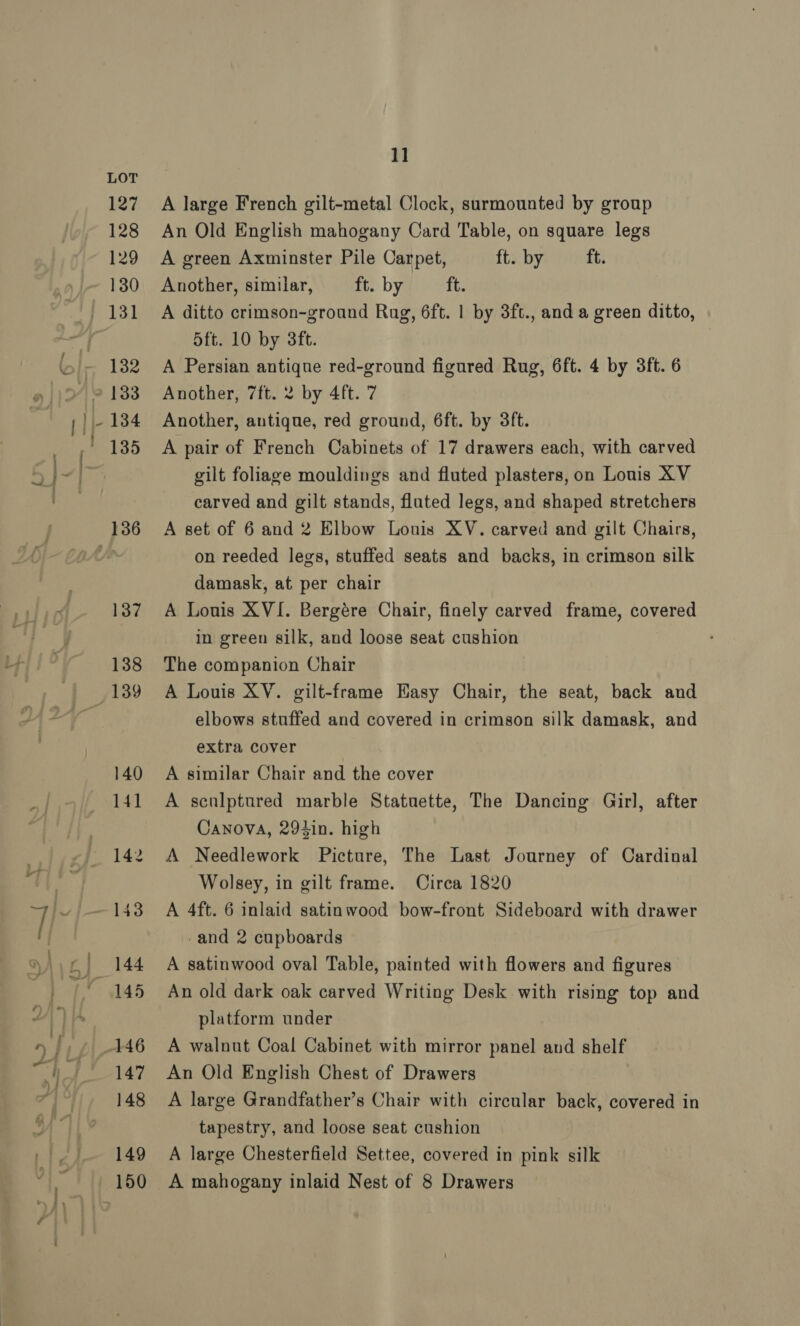 11
LOT
127 A large French gilt-metal Clock, surmounted by group
128 An Old English mahogany Card Table, on square legs
129 A green Axminster Pile Carpet, ft. by ft.
130 Another, similar, ft. by ft.
131 A ditto crimson-ground Rug, 6ft. 1 by 3ft., and a green ditto,
5ft. 10 by 3ft.
132 A Persian antique red-ground figured Rug, 6ft. 4 by 3ft. 6
133 Another, 7ft. 2 by 4ft. 7
134 Another, antique, red ground, 6ft. by 3ft.
135 A pair of French Cabinets of 17 drawers each, with carved
gilt foliage mouldings and fluted plasters, on Louis XV
carved and gilt stands, fluted legs, and shaped stretchers
136 A set of 6 and 2 Elbow Louis XV. carved and gilt Chairs,
on reeded legs, stuffed seats and backs, in crimson silk
damask, at per chair
137 A Louis XVI. Bergére Chair, finely carved frame, covered
in green silk, and loose seat cushion
138 The companion Chair
139 A Louis XV. gilt-frame Easy Chair, the seat, back and
elbows stuffed and covered in crimson silk damask, and
extra cover
140 A similar Chair and the cover
141 A sculptured marble Statuette, The Dancing Girl, after
CANOVA, 29½in. high
142 A Needlework Picture, The Last Journey of Cardinal
Wolsey, in gilt frame. Circa 1820
143 A 4ft. 6 inlaid satinwood bow-front Sideboard with drawer
and 2 cupboards
144 A satinwood oval Table, painted with flowers and figures
145 An old dark oak carved Writing Desk with rising top and
platform under
146 A walnut Coal Cabinet with mirror panel and shelf
147 An Old English Chest of Drawers
148 A large Grandfather's Chair with circular back, covered in
tapestry, and loose seat cushion
149 A large Chesterfield Settee, covered in pink silk
150 A mahogany inlaid Nest of 8 Drawers